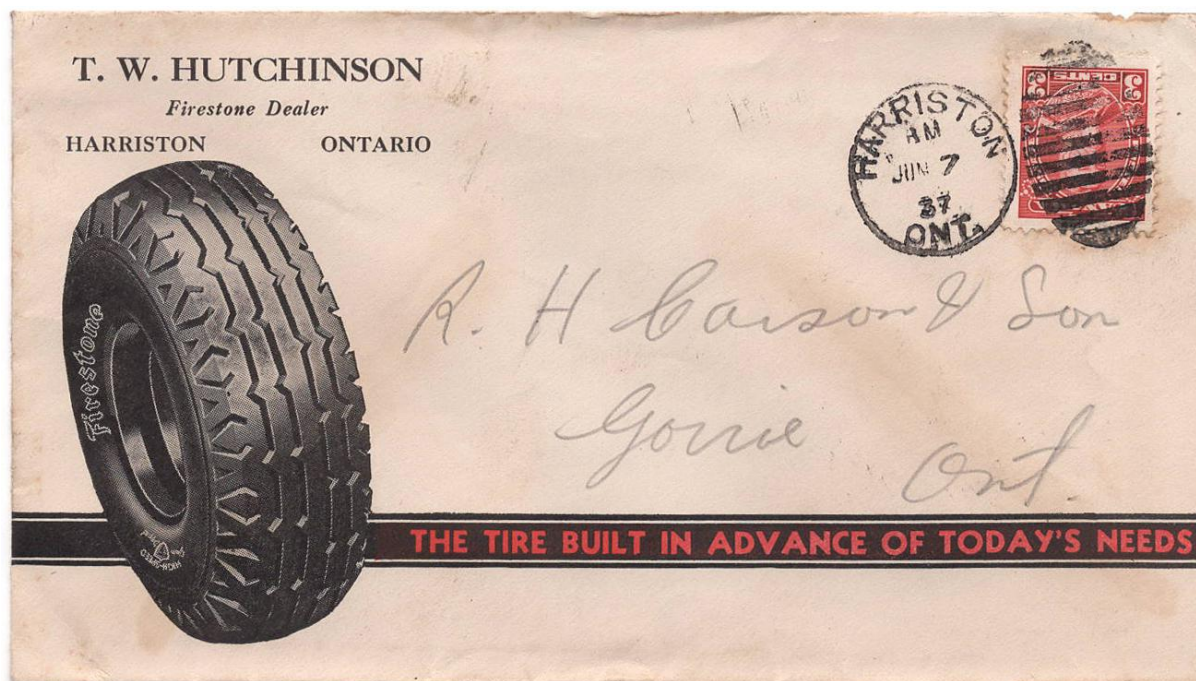 T. W. HUTCHINSON
Firestone Dealer
HARRISTON ONTARIO
HARRISTON
AM
JUN 7
37
ONT.
3 CENTS 3
R. H Carson & Son
Gorrie
Ont.
Firestone
HIGH SPEED
THE TIRE BUILT IN ADVANCE OF TODAY'S NEEDS